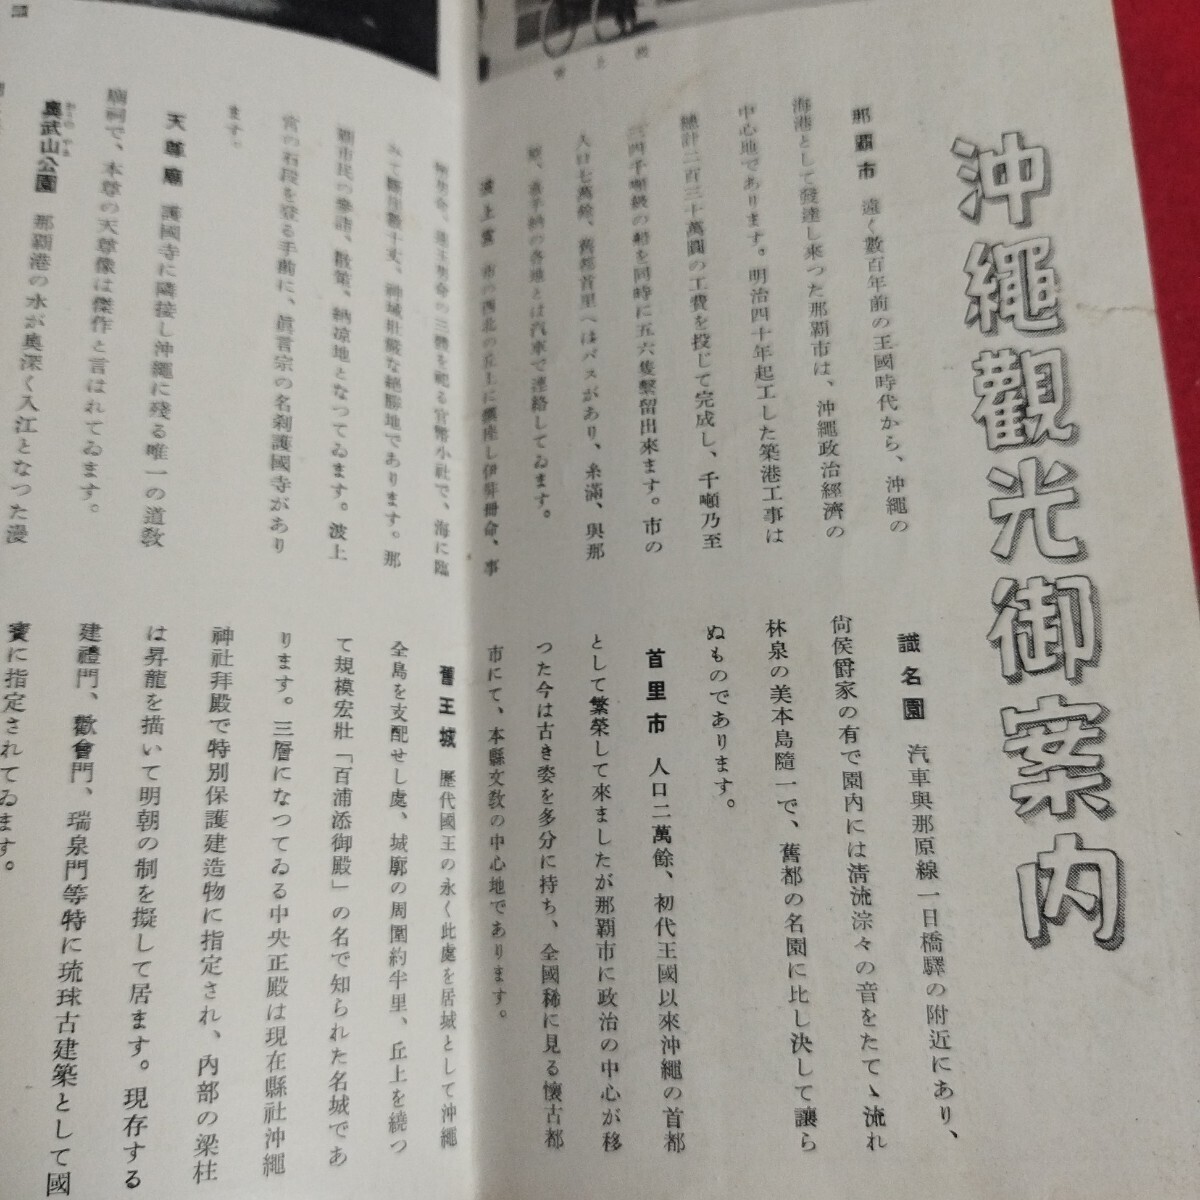 沖繩觀光御案内
那覇市　遠く數百年前の王國時代から、沖繩の
海港として發達し來つた那覇市は、沖繩政治經濟の
中心地であります。明治四十年起工した築港工事は
總計二百三十萬圓の工費を投じて完成し、千噸乃至
三四千噸級の船を同時に五六隻繫留出來ます。市の
人口七萬餘、舊都首里へはバスがあり、糸滿、與那
原、嘉手納の各地とは汽車で連絡してゐます。
波上宮　市の西北の丘上に鎭座し伊弉册命、事
解男命、速玉男命の三體を祀る官幣小社で、海に臨
みて斷崖數十丈、神域壯嚴な絶勝地であります。那
覇市民の參詣、散策、納凉地となつてゐます。波上
宮の石段を登る手前に、眞言宗の名刹護國寺があり
ます。
天尊廟　護國寺に隣接し沖繩に殘る唯一の道敎
廟祠で、本尊の天尊像は傑作と言はれてゐます。
奧武山公園　那覇港の水が奧深く入江となつた漫
識名園　汽車與那原線一日橋驛の附近にあり、
尙侯爵家の有で園内には淸流淙々の音をたてゝ流れ
林泉の美本島隨一で、舊都の名園に比し決して讓ら
ぬものであります。
首里市　人口二萬餘、初代王國以來沖繩の首都
として繁榮して來ましたが那覇市に政治の中心が移
つた今は古き姿を多分に持ち、全國稀に見る懷古都
市にて、本縣文敎の中心地であります。
舊王城　歷代國王の永く此處を居城として沖繩
全島を支配せし處、城廓の周圍約半里、丘上を繞つ
て規模宏壯「百浦添御殿」の名で知られた名城であ
ります。三層になつてゐる中央正殿は現在縣社沖繩
神社拜殿で特別保護建造物に指定され、内部の梁柱
は昇龍を描いて明朝の制を擬して居ます。現存する
建禮門、歡會門、瑞泉門等特に琉球古建築として國
寶に指定されてゐます。